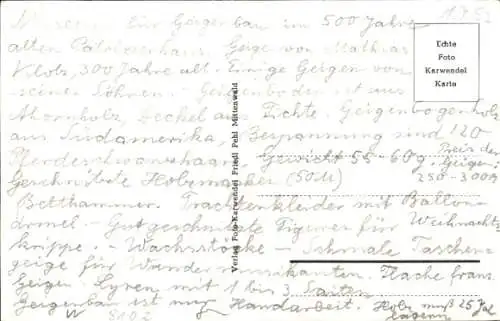 Museum für Geigenbau im 500 Jahre
alten Patrizierhaus. Geige von Mathias
Klotz, 300 Jahre alt. Einige Geigen von
seinen Söhnen. Geigenboden ist aus
Ahornholz, Deckel aus Fichte. Geigenbogenholz
aus Südamerika, Bespannung sind 120
Pferdeschwanzhaare, Gewicht 55-60 g.
Preis der
Geigen
250-300 M
Geschnitzte Holz (50 M)
Betthammer. Trachtenkleider mit Ballon-
ärmel. Gutgeschnitzte Figuren für Weihnachts-
krippe. Wachsstöcke. Schmale Taschen-
geige für Wandermusikanten. Flache franz.
Geige. Lyren mit 1 bis 3 Saiten
Geigenbau ist nur Handarbeit. Holz muß 25 Jahre
lagern
8102
1952
Echte
Foto
Karwendel
Karte
Verlag Foto-Karwendel Friedl Pehl Mittenwald